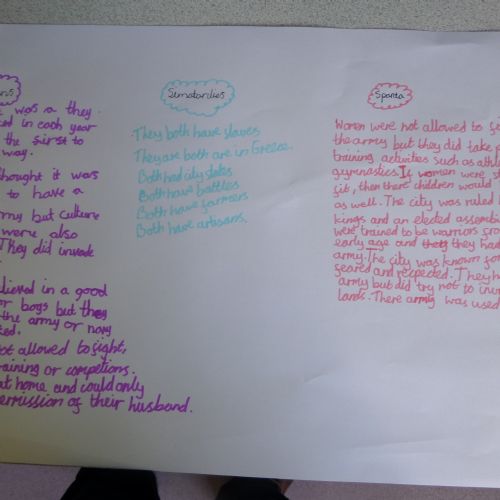 ns
was a they
ed in each year
the first to
way.
hought it was
to have a
rmy but culture
were also
They did invade
lieved in a good
or boys but they
the army or navy
ed.
ot allowed to fight,
raining or competions.
at home and could only
ermission of their husband.
Simatardies
They both have slaves
They are both are in Greece.
Both had city states
Both have battles
Both have farmers
Both have artisans.
Sparta
Women were not allowed to fi
the army but they did take p
training activities such as athl
gymnastics. If women were
fit, then there children would
as well. The city was ruled
kings and an elected assemb
were trained to be warriors fro
early age and they had
army. The city was known for
feared and respected. They h
army but did try not to inv
lands. There army was used